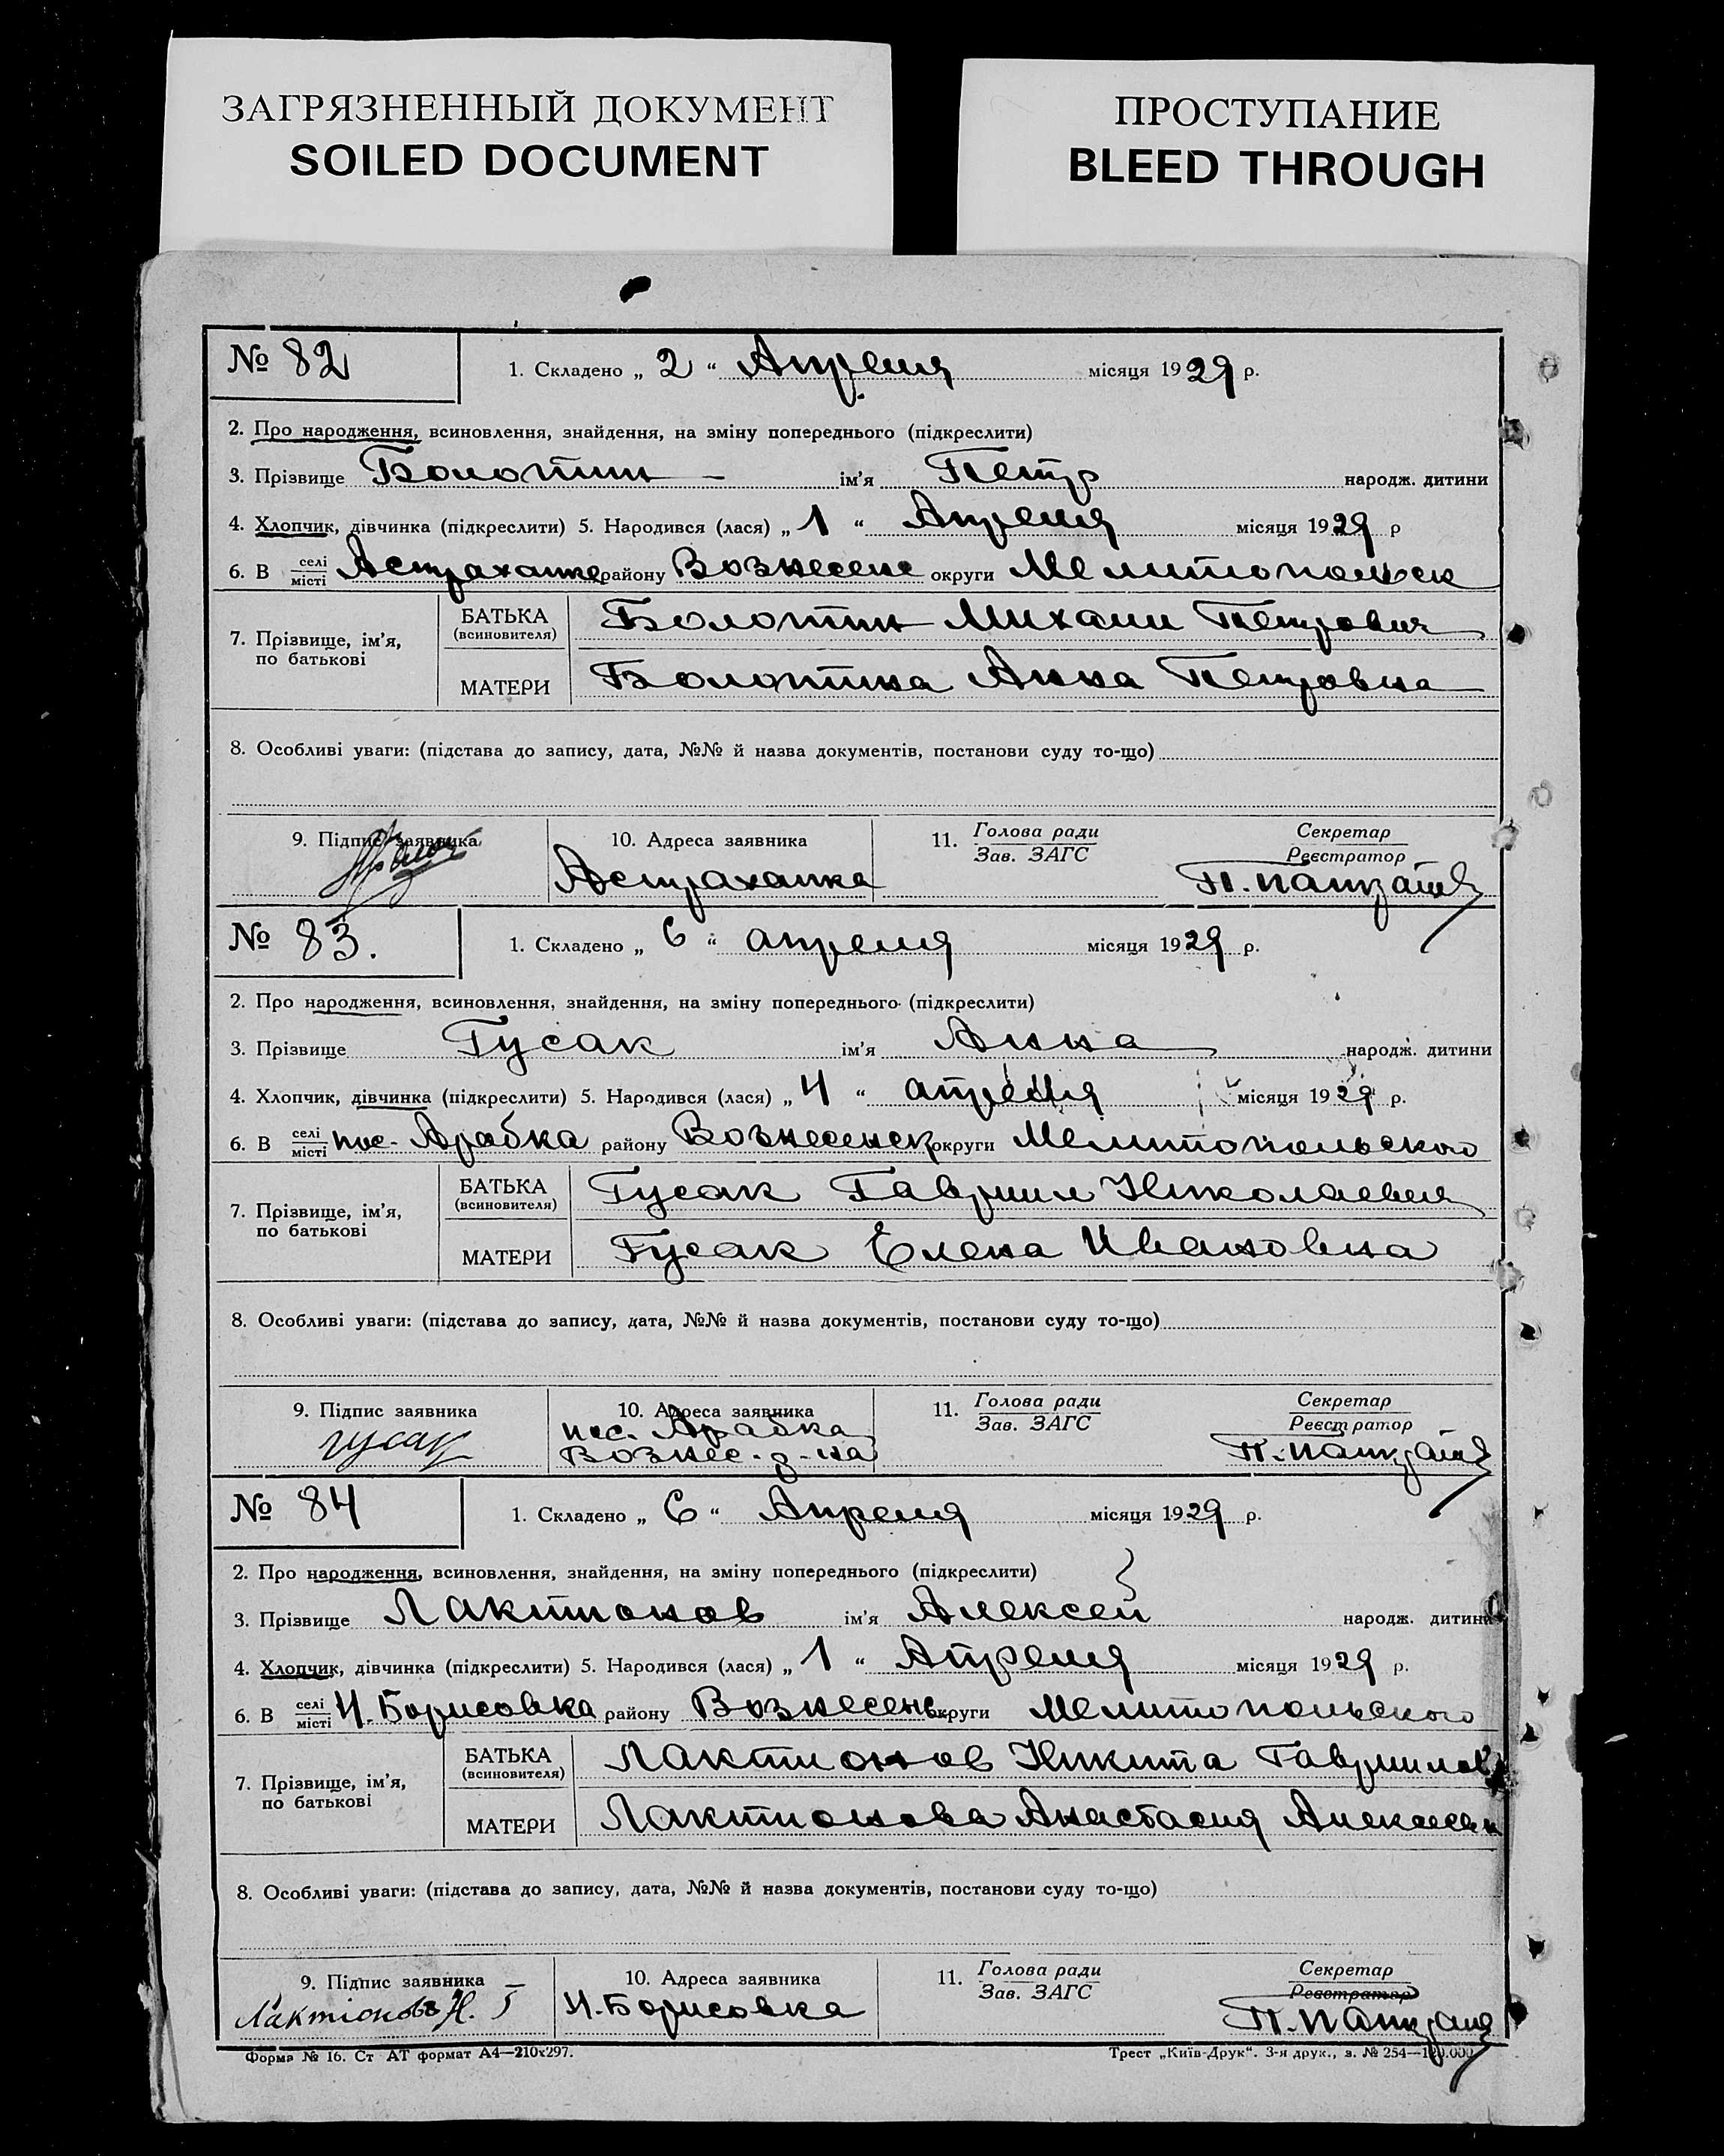 ЗАГРЯЗНЕННЫЙ ДОКУМЕНТ
SOILED DOCUMENT
ПРОСТУПАНИЕ
BLEED THROUGH
№ 82
1. Складено „ 2 “ Апреля місяця 1929 р.
2. Про народження, всиновлення, знайдення, на зміну попереднього (підкреслити)
3. Прізвище Болотин ім'я Петр народж. дитини
4. Хлопчик, дівчинка (підкреслити) 5. Народився (лася) „ 1 “ Апреля місяця 1929 р
6. В селі/місті Астраханке району Вознесенс округи Мелитопольск
7. Прізвище, ім'я, по батькові
БАТЬКА (всиновителя) Болотин Михаил Петрович
МАТЕРИ Болотина Анна Петровна
8. Особливі уваги: (підстава до запису, дата, №№ й назва документів, постанови суду то-що)
9. Підпис заявника
10. Адреса заявника
Астраханка
11. Голова ради
Зав. ЗАГС
Секретар
Реєстратор
№ 83.
1. Складено „ 6 “ апреля місяця 1929 р.
2. Про народження, всиновлення, знайдення, на зміну попереднього (підкреслити)
3. Прізвище Гусак ім'я Анна народж. дитини
4. Хлопчик, дівчинка (підкреслити) 5. Народився (лася) „ 4 “ апреля місяця 1929 р.
6. В селі/місті пос. Арабка району Вознесенск округи Мелитопольского
7. Прізвище, ім'я, по батькові
БАТЬКА (всиновителя) Гусак Гавриил Николаевич
МАТЕРИ Гусак Елена Ивановна
8. Особливі уваги: (підстава до запису, дата, №№ й назва документів, постанови суду то-що)
9. Підпис заявника
гусак
10. Адреса заявника
пос. Арабка
Вознес.
11. Голова ради
Зав. ЗАГС
Секретар
Реєстратор
№ 84
1. Складено „ 6 “ Апреля місяця 1929 р.
2. Про народження, всиновлення, знайдення, на зміну попереднього (підкреслити)
3. Прізвище Лактионов ім'я Алексей народж. дитини
4. Хлопчик, дівчинка (підкреслити) 5. Народився (лася) „ 1 “ Апреля місяця 1929 р.
6. В селі/місті Н. Борисовка району Вознесенс округи Мелитопольского
7. Прізвище, ім'я, по батькові
БАТЬКА (всиновителя) Лактионов Никита Гаврилов
МАТЕРИ Лактионова Анастасия Алексеевн
8. Особливі уваги: (підстава до запису, дата, №№ й назва документів, постанови суду то-що)
9. Підпис заявника
Лактіоновъ Н. Г
10. Адреса заявника
Н. Борисовка
11. Голова ради
Зав. ЗАГС
Секретар
Реєстратор
Форма № 16. Ст АТ формат А4—210х297.
Трест „Київ-Друк“. 3-я друк., з. № 254—120.000